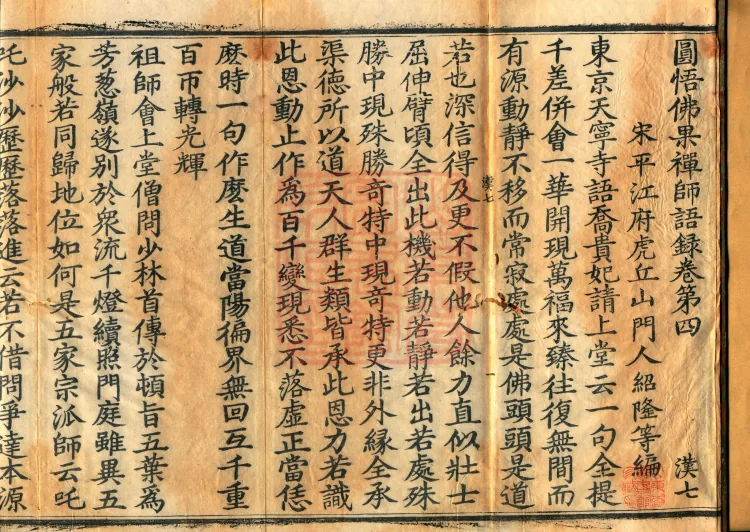 圓悟佛果禪師語録卷第四
漢七
宋平江府虎丘山門人紹隆等編
東京天寧寺語喬貴妃請上堂云一句全提
千差併會一華開現萬福來臻往復無間而
有源動靜不移而常寂處處是佛頭頭是道
漢七
若也深信得及更不假他人餘力直似壯士
屈伸臂頃全出此機若動若靜若出若處殊
勝中現殊勝奇特中現奇特更非外縁全承
渠德所以道天人群生類皆承此恩力若識
此恩動止作為百千變現悉不落虛正當恁
麽時一句作麽生道當陽徧界無回互千重
百帀轉光輝
祖師會上堂僧問少林首傳於頓旨五葉為
芳葱嶺遂別於衆流千燈續照門庭雖異五
家般若同歸地位如何是五家宗派師云吒
吒沙沙歷歷落落進云若不借問爭達本源